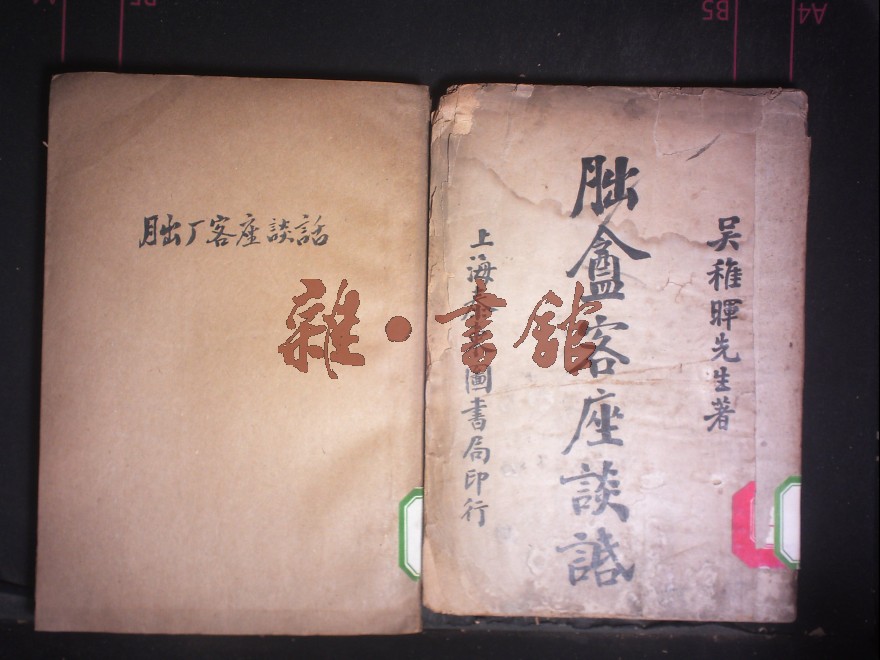 朏厂客座談話
吳稚暉先生著
朏盦客座談話
上海泰東圖書局印行
雜·書館
B5
A4